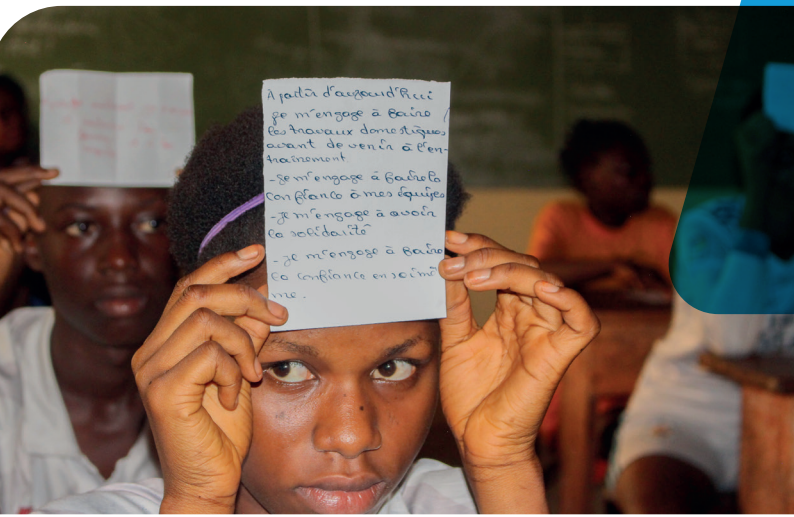 A partir d'aujourd'hui
je m'engage à faire
les travaux domestiques
avant de venir à l'en-
traînement
-je m'engage à faire la
confiance à mes équipes
-Je m'engage à avoir
la solidarité
-je m'engage à faire
la confiance en soi mê
me.